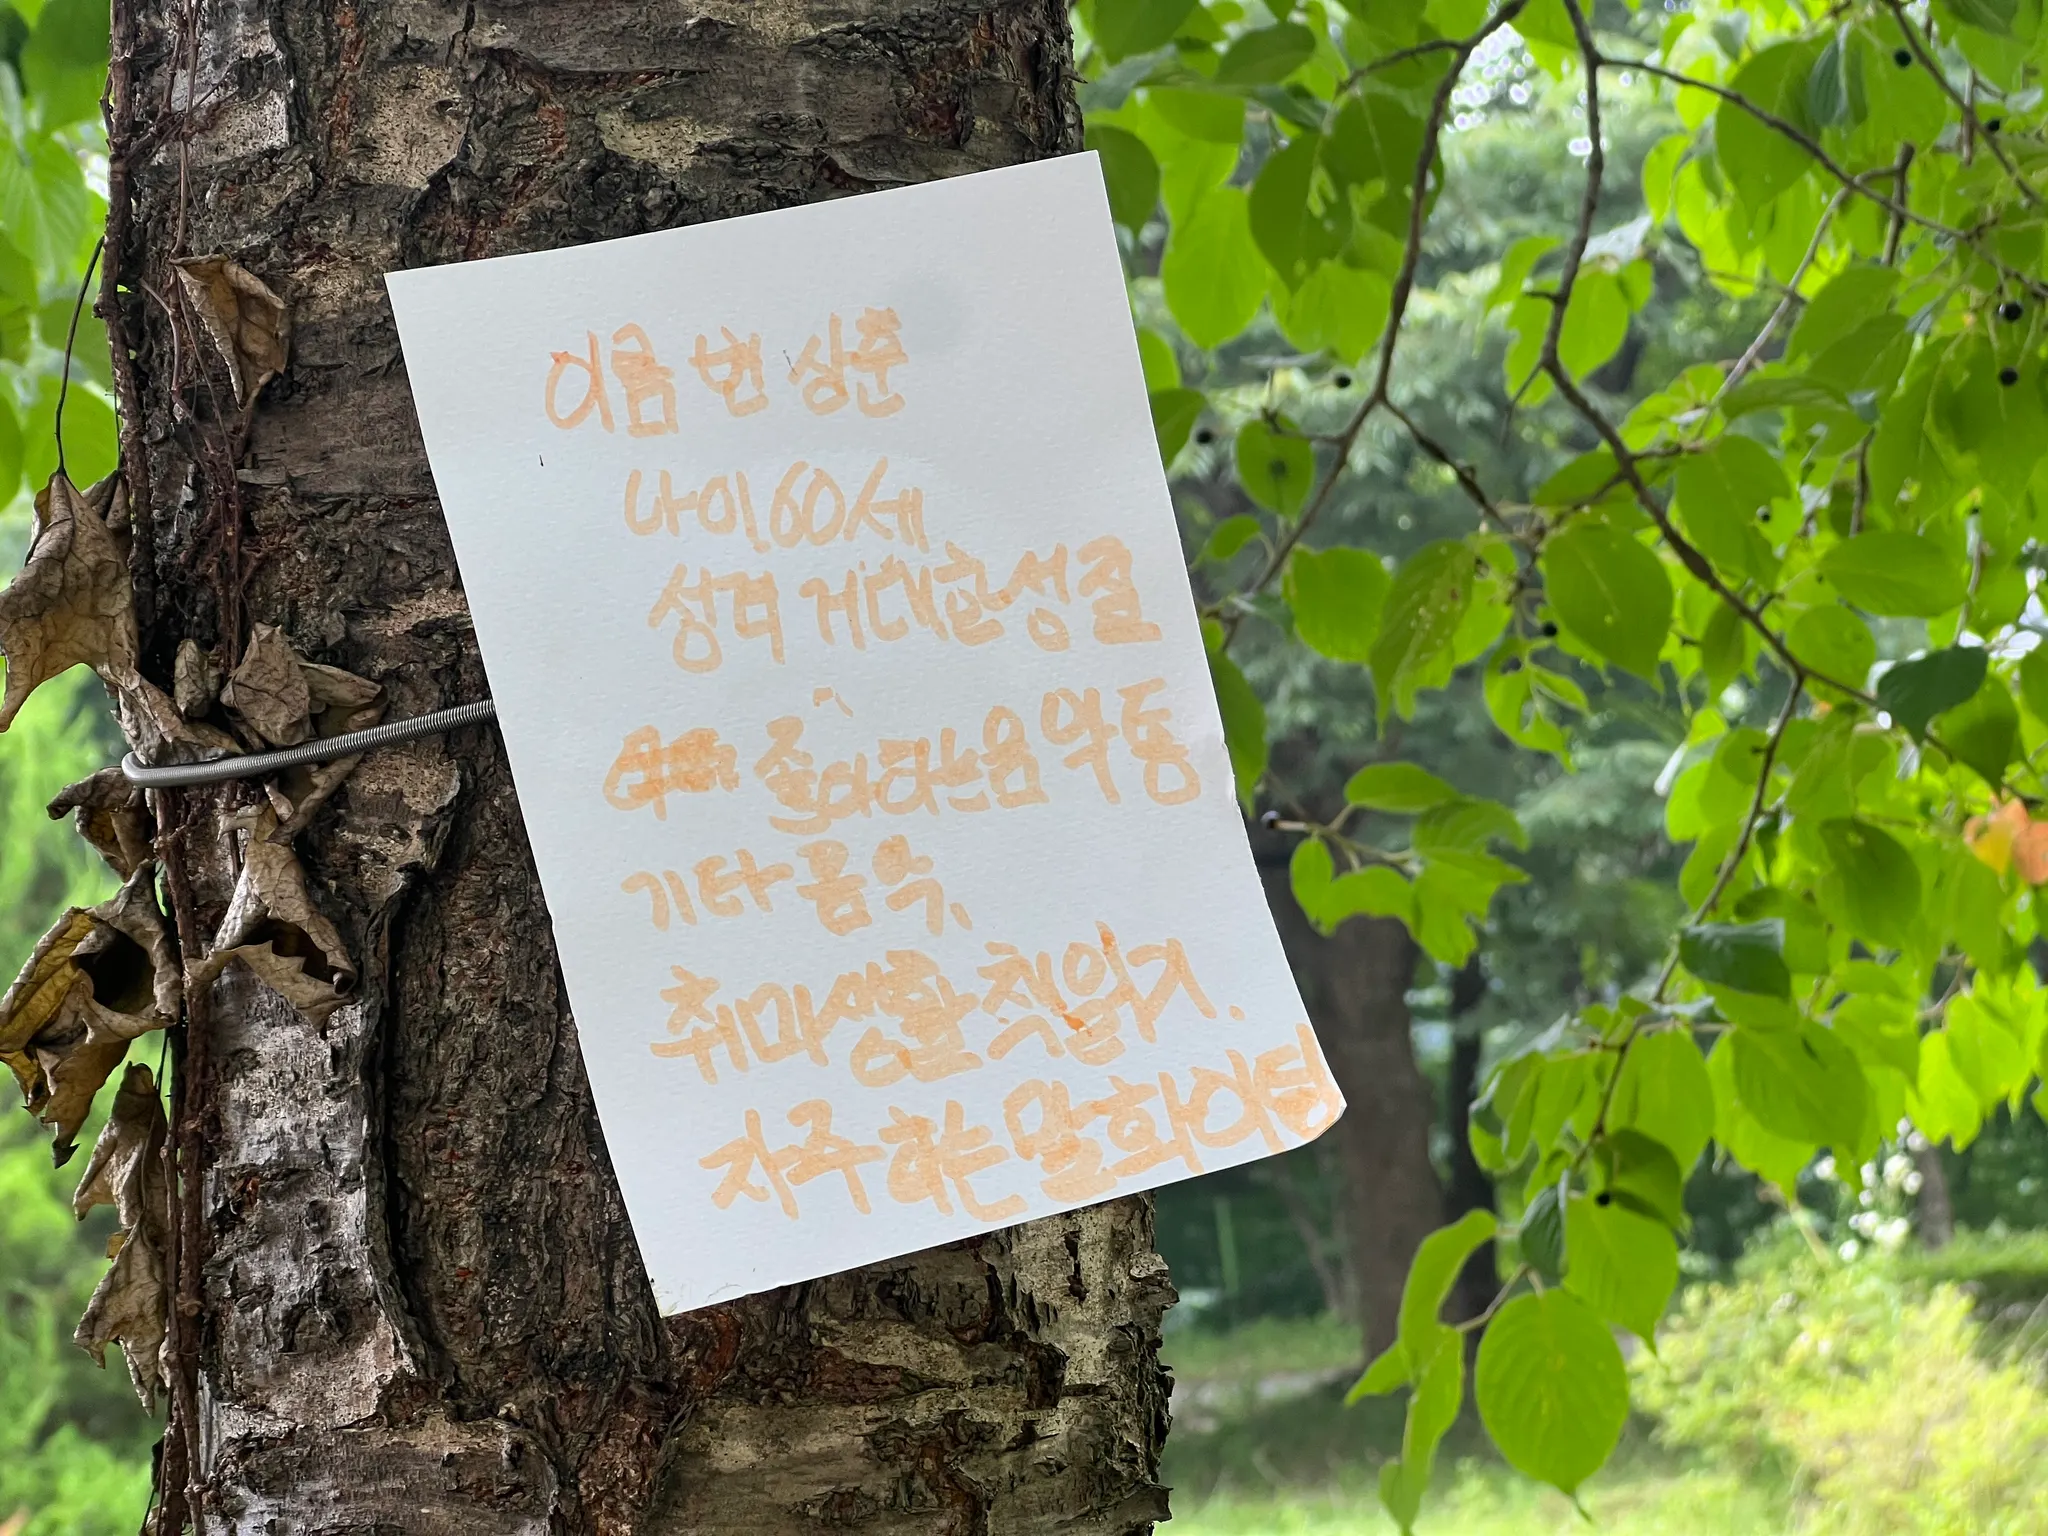 이름 번 상춘
나이 60세
성격 거대한 성질
좋아하는 음악 통
기타 음악,
취미생활 책 읽기.
자주하는 말 화이팅